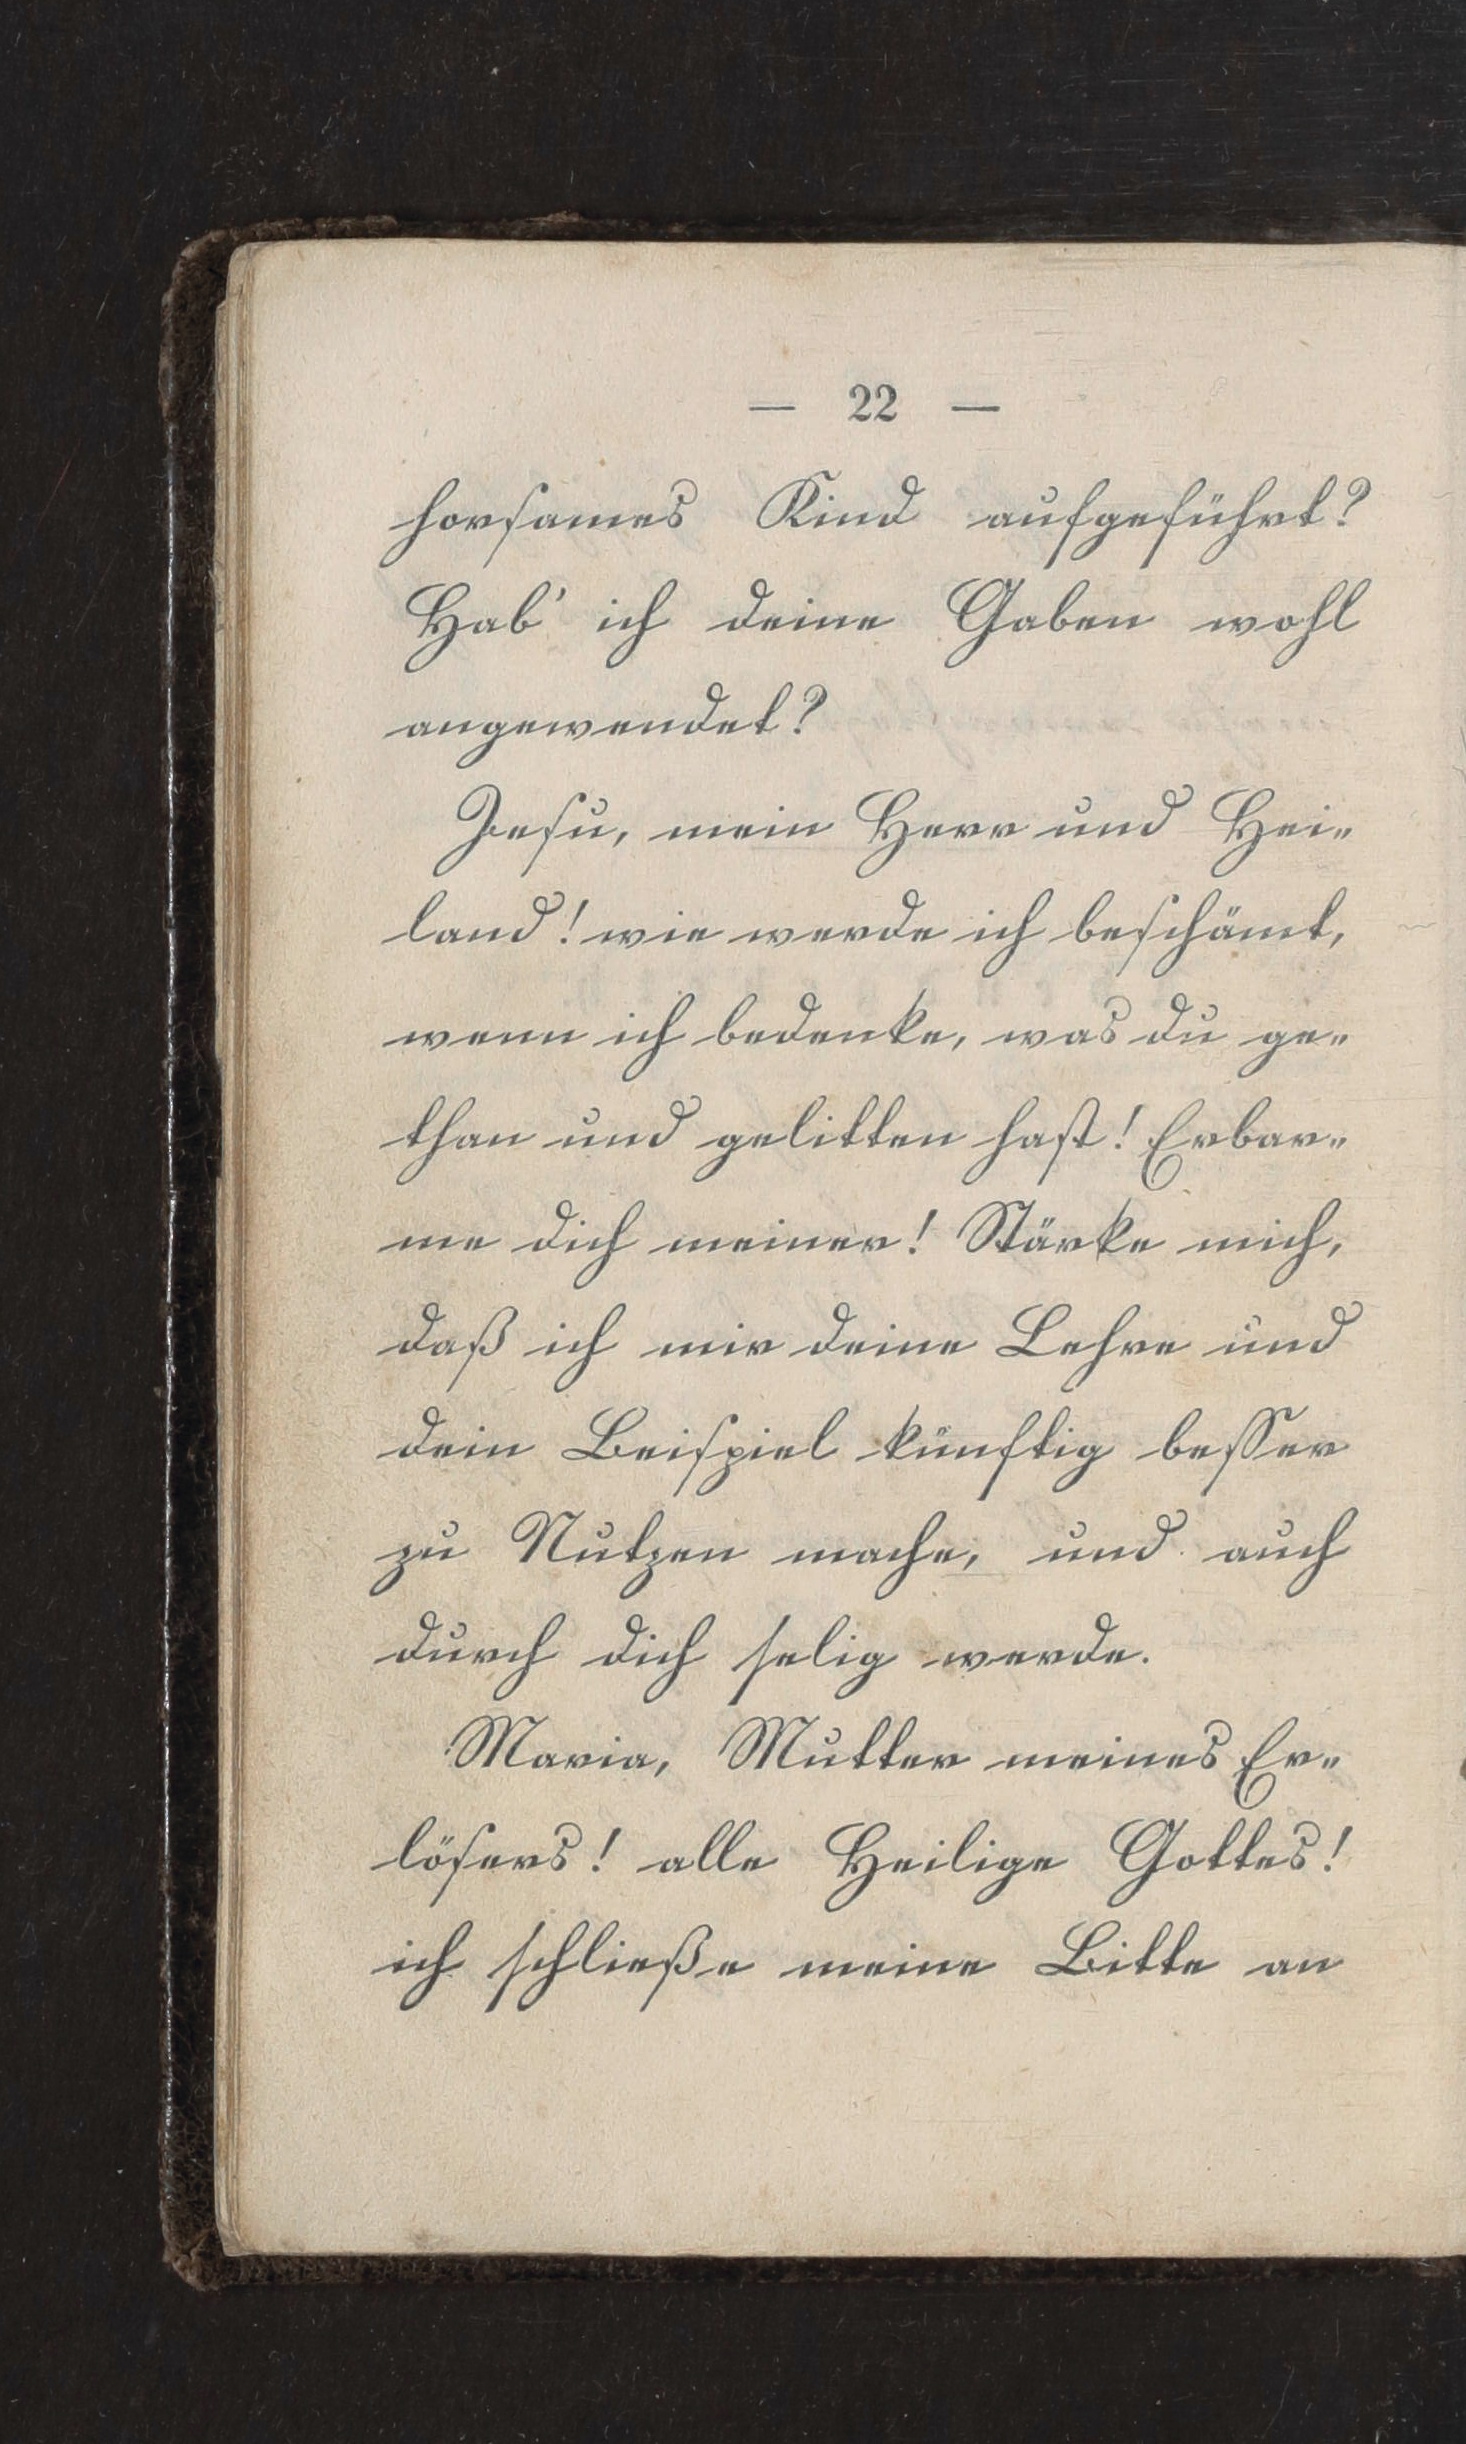 — 22 —
horsames Kind aufgeführt?
Hab' ich deine Gaben wohl
angewendet?
Jesu, mein Herr und Hei-
land! wie werde ich beschämt,
wenn ich bedenke, was du ge-
than und gelitten hast! Erbar-
me dich meiner! Stärke mich,
daß ich mir deine Lehre und
dein Beispiel künftig besser
zu Nutzen mache, und auch
durch dich selig werde.
Maria, Mutter meines Er-
lösers! alle Heilige Gottes!
ich schließe meine Bitte an